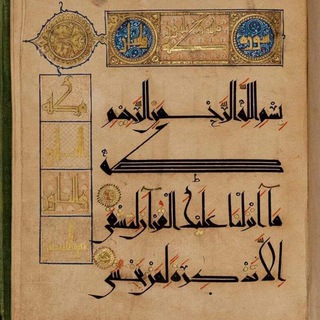 سورة طه
بسم الله الرحمن الرحيم
طه
ما أنزلنا عليك القرآن لتشقى
إلا تذكرة لمن يخشى